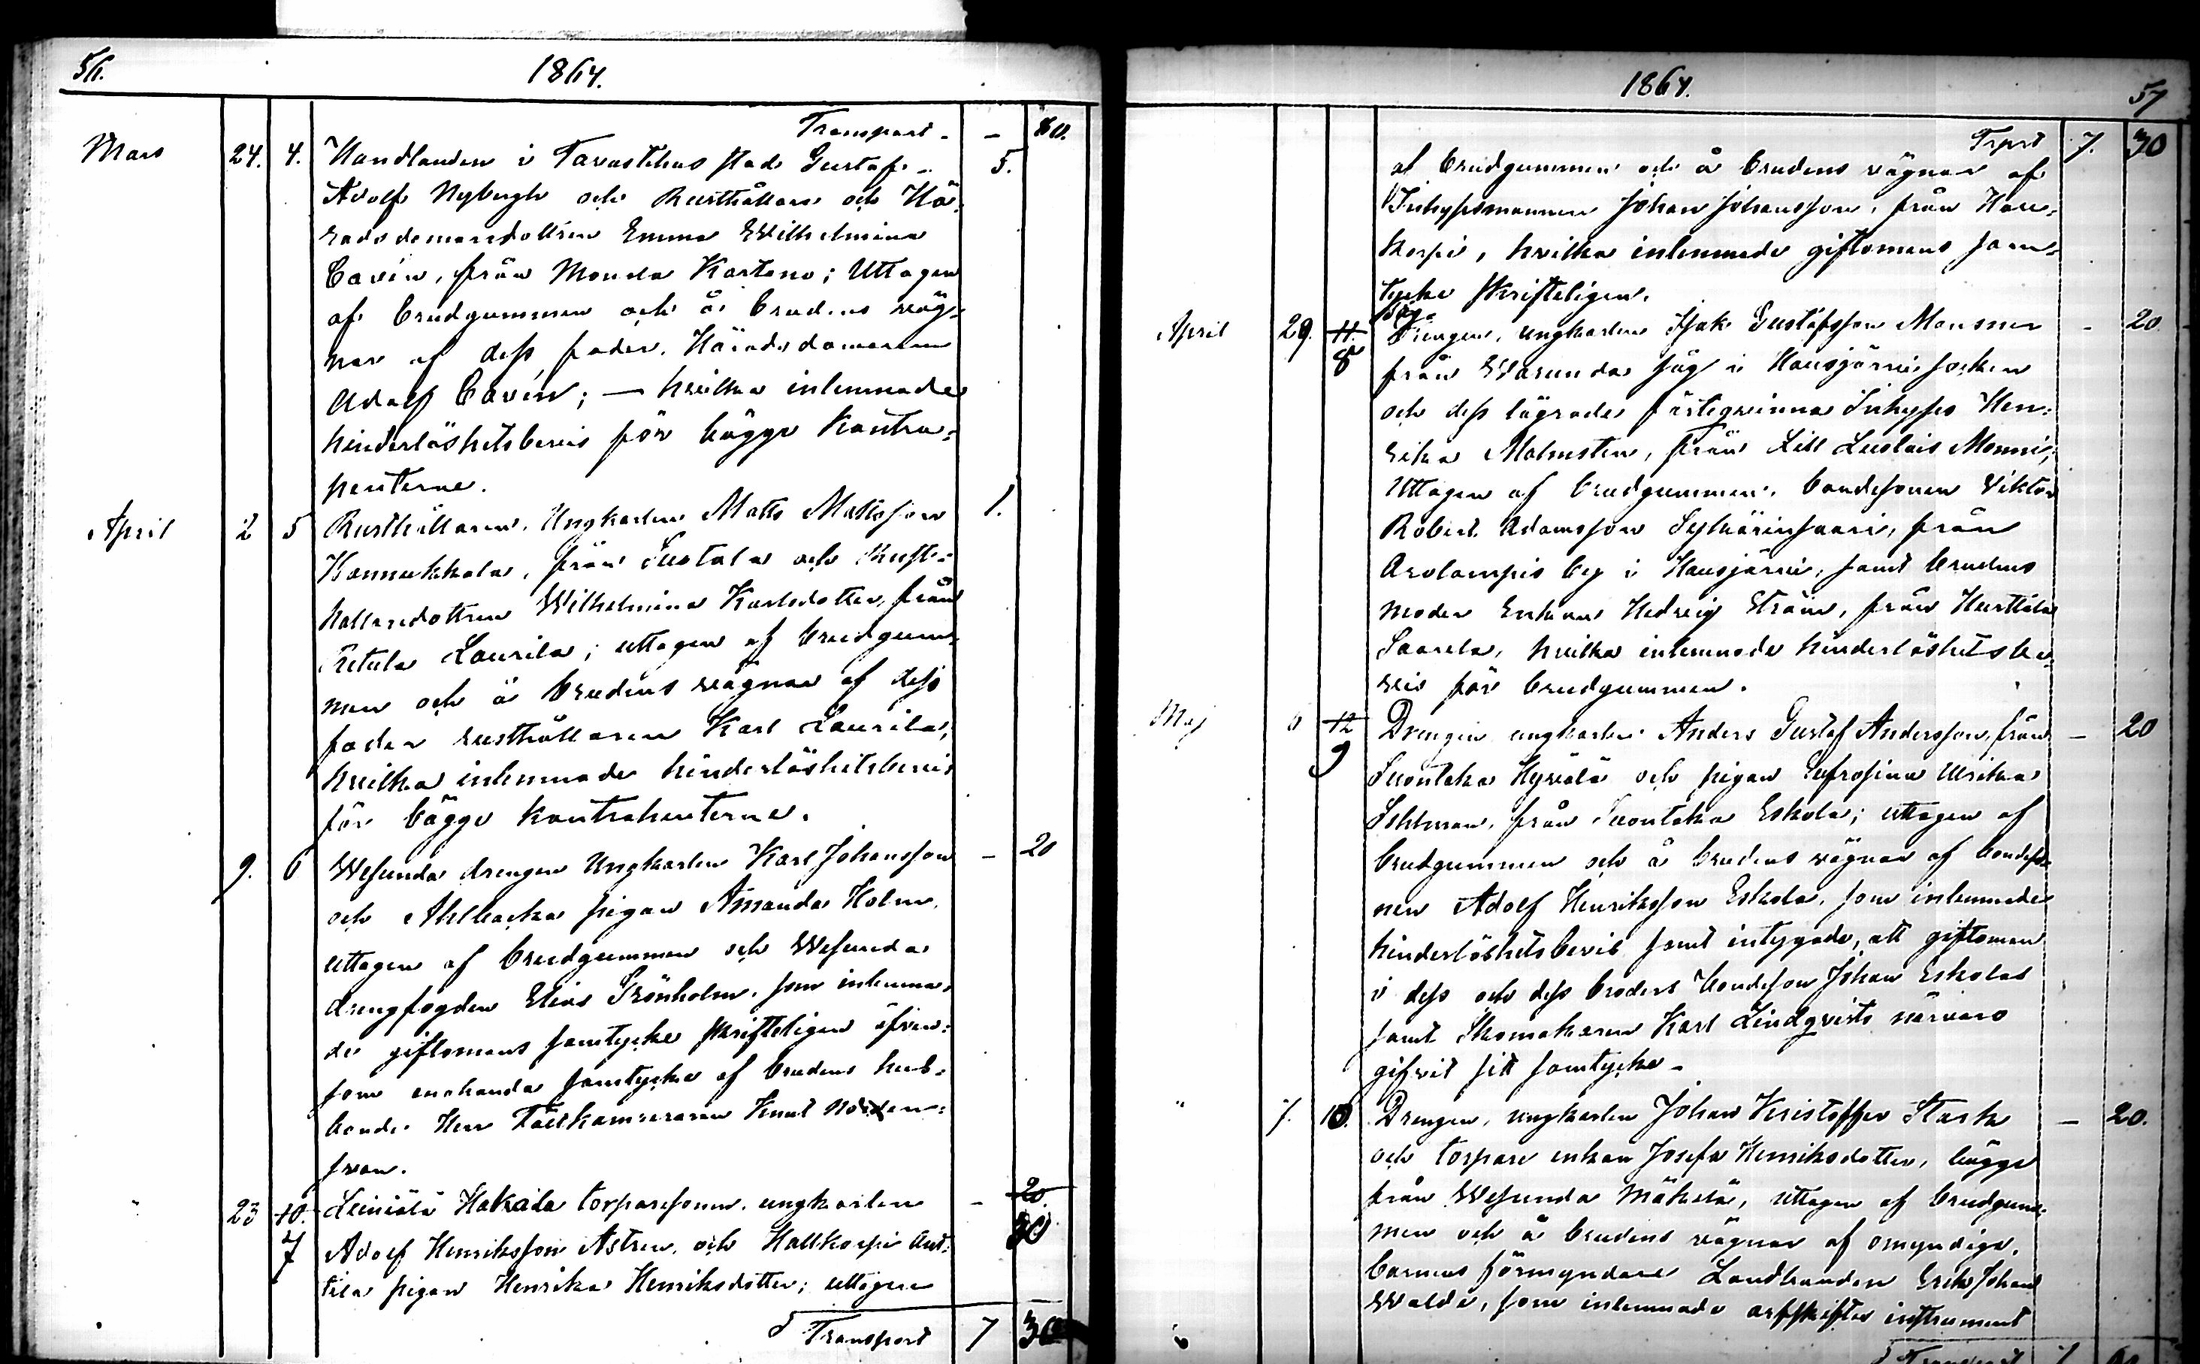 56. 1864.
Transport - - 80.
Mars 24. 4. Handlanden i Tavastehus stad Gustaf 5.
Adolf Nybergh och Rusthållare och Hä-
radsdomaredottren Emma Wilhelmina
Cavén, från Monda Kartano; Uttagen
af brudgummen och å brudens väg-
nar af dess fader, Häradsdomaren
Adolf Cavén; — hvilka inlemnade
hinderlöshetsbevis för bägge Kontra-
henterne.
April 2 5 Rusthållaren, Ungkarlen Matts Mattsson 1.
Kannukkala, från och Rust-
hållaredottren Wilhelmina Karlsdotter, från
Retula Laurila; uttagen af brudgum-
men och å brudens vägnar af dess
fader rusthållaren Karl Laurila,
hvilka inlemnade hinderlöshetsbevis
för bägge kontrahenterne.
9. 6 Wesunda drengen Ungkarlen Karl Johansson - 20
och Ahlbacka pigan Amanda Holm,
uttagen af brudgumman och Wesunda
drengfogden Elias Grönholm, som inlemna-
de giftomans samtycke skrifteligen äfven-
som enahanda samtycke af brudens hus-
bonde Herr Fältkamreraren Knut
svan.
" 23 10. Leiniälä Hakala torparesonen, ungkarlen - 20
7 Adolf Henriksson Astren, och Hattkorpi Ant- 30
tila pigan Henrika Henriksdotter; uttagen
Transport 7 30
1864. 57
Trprt 7. 30
af brudgummen och å brudens vägnar af
Inhysesmannen Johan Johansson, från
korpi, hvilka inlemnade giftomans sam-
tycke skrifteligen.
April 29. 11. Drengen, ungkarlen Isak Gustafsson Mansner - 20
8 från Warunda såg i Hausjärvi socken
och dess lägrade fästeqvinna Inhyses Hen-
rika Malmsten, från Lill Luolais Monni;
Uttagen af brudgummen, bondesonen Viktor
Robert Adamsson från
Arolampis by i Hausjärvi, samt brudens
moder Enkan Hedvig Ström, från Hurttala
Saarela, hvilka inlemnade hinderlöshetsbe-
vis för brudgummen.
Maj 6 12 Drengen ungkarlen Anders Gustaf Andersson, från - 20
9 Suontaka Hyvälä och pigan Eufrosina Ulrika
Sohlman, från Suontaka Eskola; uttagen af
brudgummen och å brudens vägnar af bondeso-
nen Adolf Henriksson Eskola, som inlemnade
hinderlöshetsbevis samt intygade, att giftoman
i dess och dess broders bondeson Johan Eskolas
samt Skomakaren Karl Lindqvists närvaro
gifvit sitt samtycke -
" 7. 10. Drengen, ungkarlen Johan Kristoffer Stark - 20.
och torpare enkan Josefa Henriksdotter, bägge
från Wesunda Mäkelä, uttagen af brudgum-
men och å brudens vägnar af omyndiga
barnens förmyndare Landbonden Erik Johan
Walde, som inlemnade arfskiftes instrument
Transport